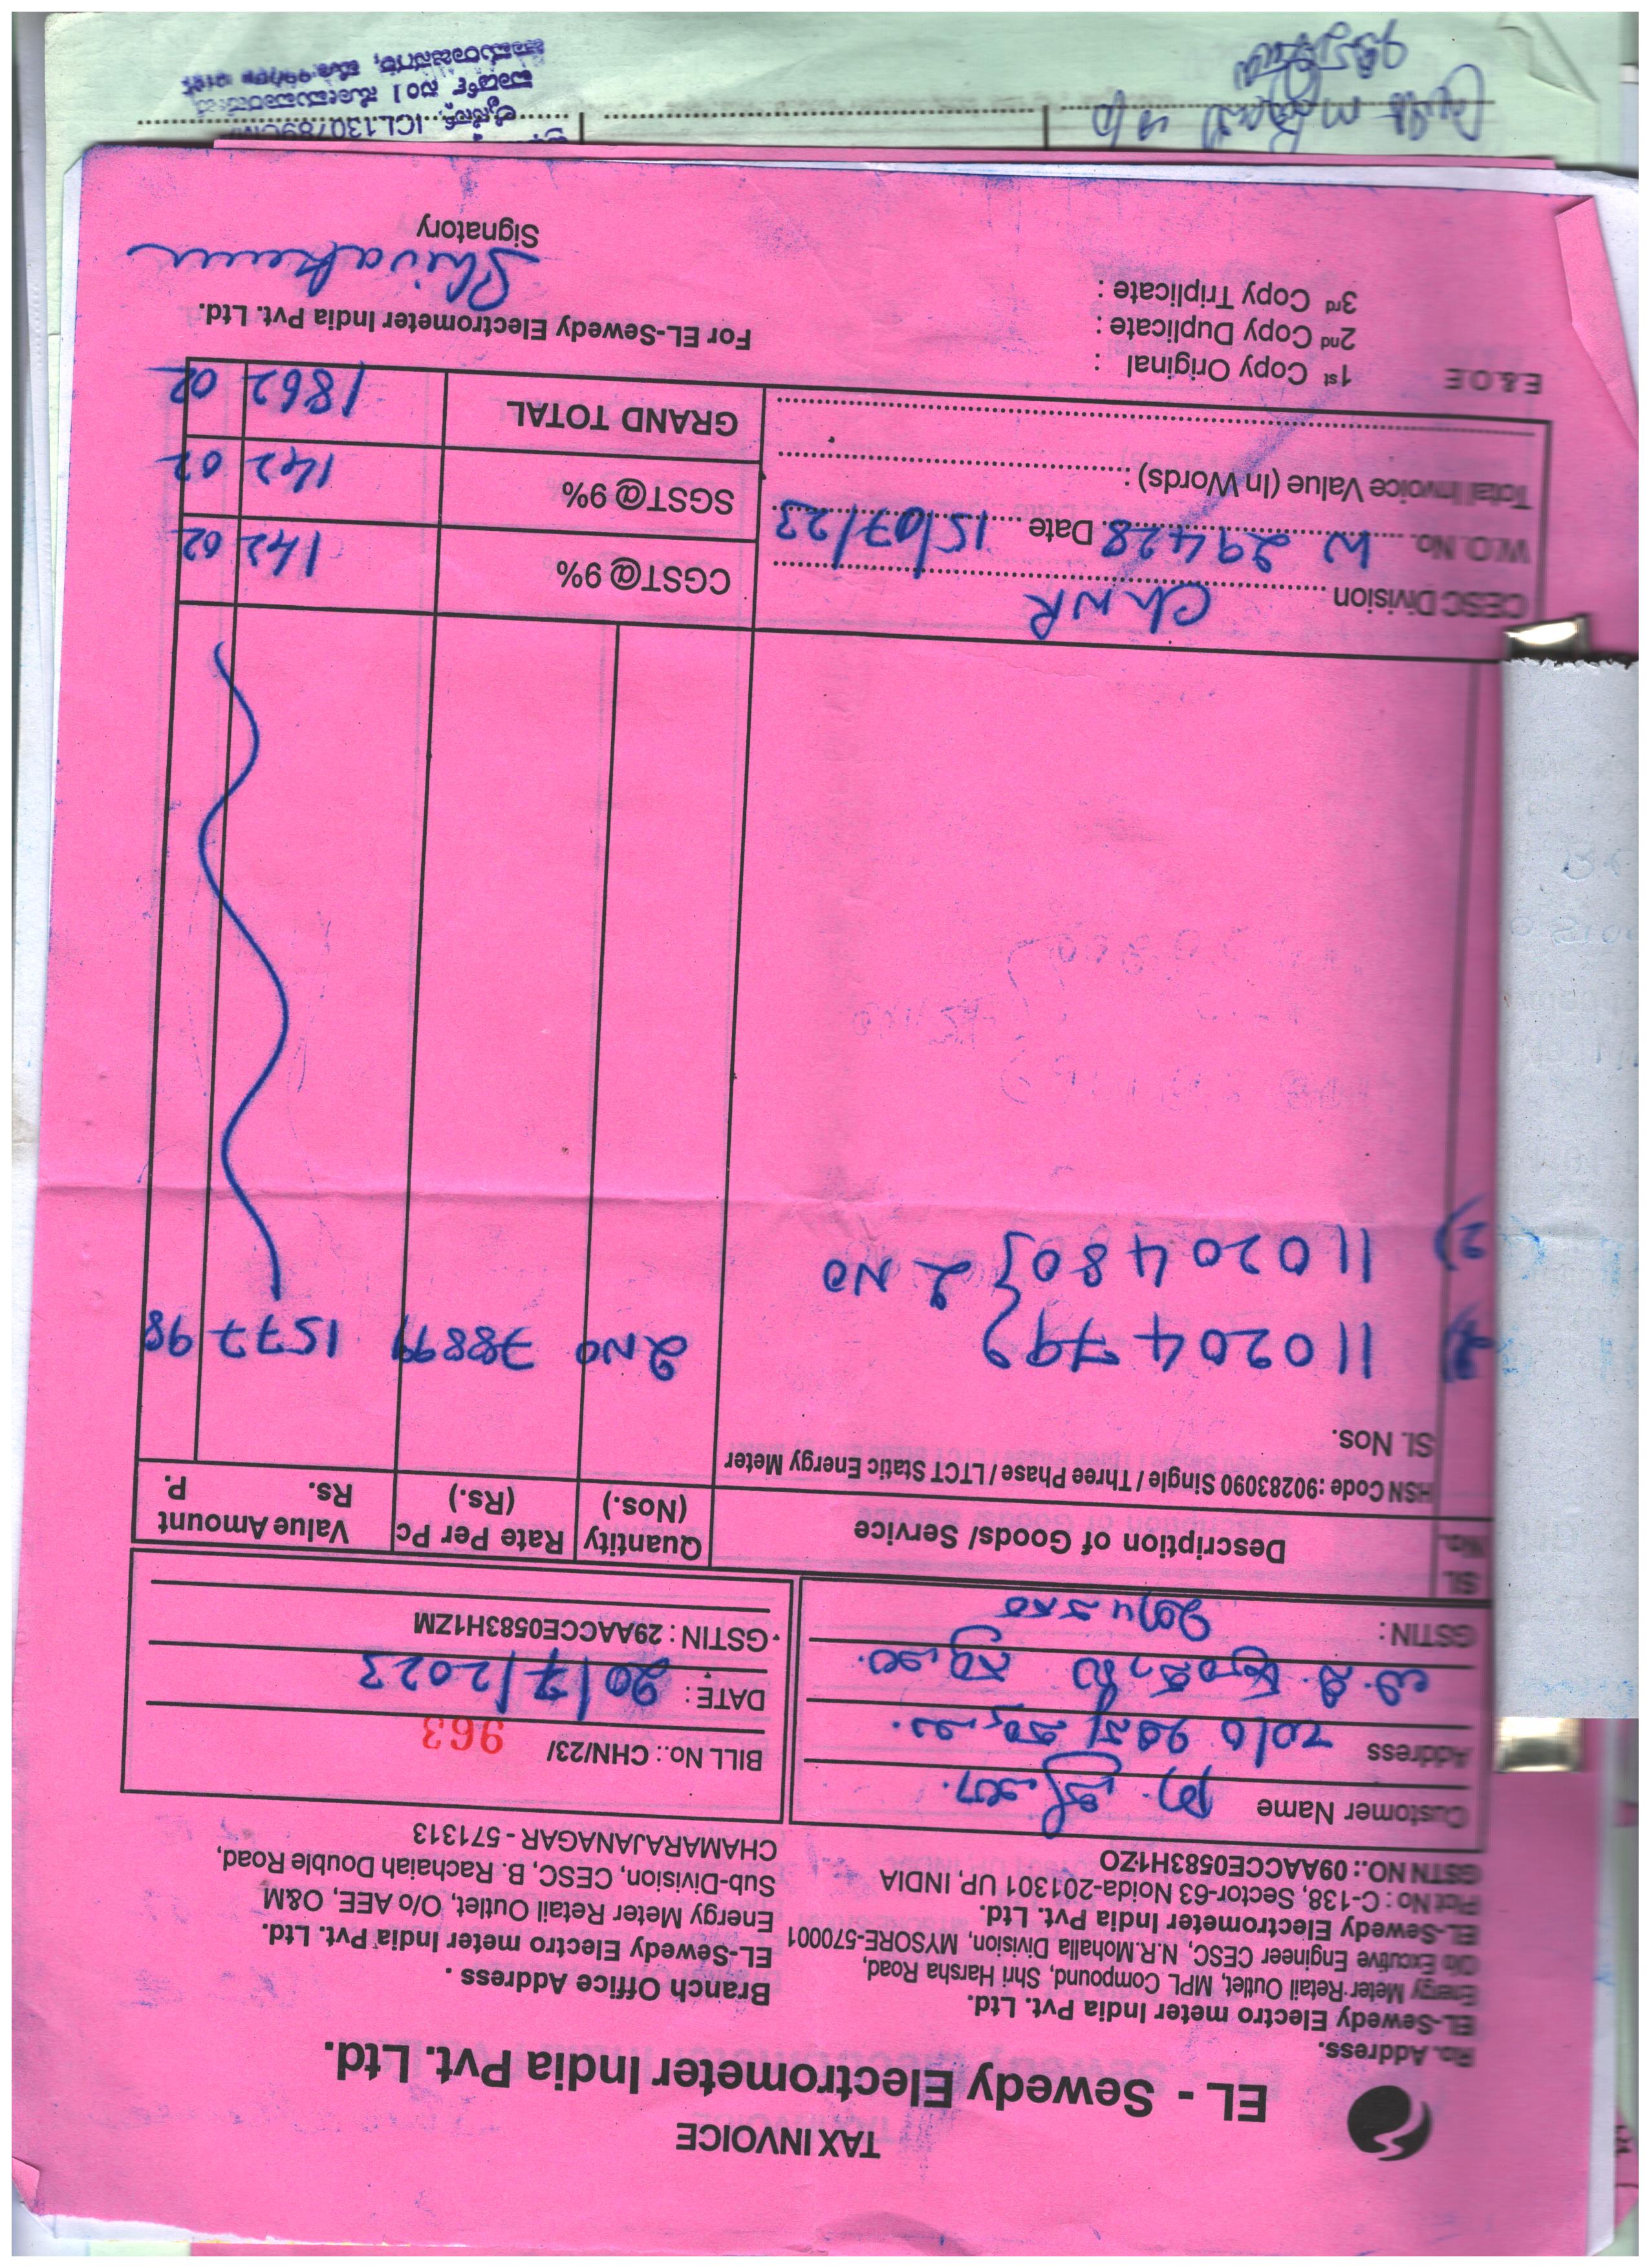 TAX INVOICE
EL - Sewedy Electrometer India Pvt. Ltd.
Ro. Address.
EL-Sewedy Electro meter India Pvt. Ltd.
Energy Meter Retail Outlet, MPL Compound, Shri Harsha Road,
O/o Excutive Engineer CESC, N.R.Mohalla Division, MYSORE-570001
EL-Sewedy Electrometer India Pvt. Ltd.
Plot No : C-138, Sector-63 Noida-201301 UP, INDIA
GSTN NO.: 09AACCE0583H1ZO
Branch Office Address .
EL-Sewedy Electro meter India Pvt. Ltd.
Energy Meter Retail Outlet, O/o AEE, O&M
Sub-Division, CESC, B. Rachaiah Double Road,
CHAMARAJANAGAR - 571313
Customer Name
Address
GSTIN:
BILL No.: CHN/23/ 963
DATE: 20/7/2023
GSTIN : 29AACCE0583H1ZM
Sl. No. Description of Goods/ Service Quantity (Nos.) Rate Per Pc (Rs.) Value Amount Rs. P.
HSN Code : 90283090 Single / Three Phase / LTCT Static Energy Meter
Sl. Nos.
11020479 2 NO 78899 1577 98
2) 11020480 } 2 NO
CESC Division ChNR
W.O. No. W 29428 Date 15/07/23
Total Invoice Value (In Words) :
CGST@ 9% 142 02
SGST@ 9% 142 02
GRAND TOTAL 1862 02
E.& O.E
1st Copy Original :
2nd Copy Duplicate :
3rd Copy Triplicate :
For EL-Sewedy Electrometer India Pvt. Ltd.
Signatory